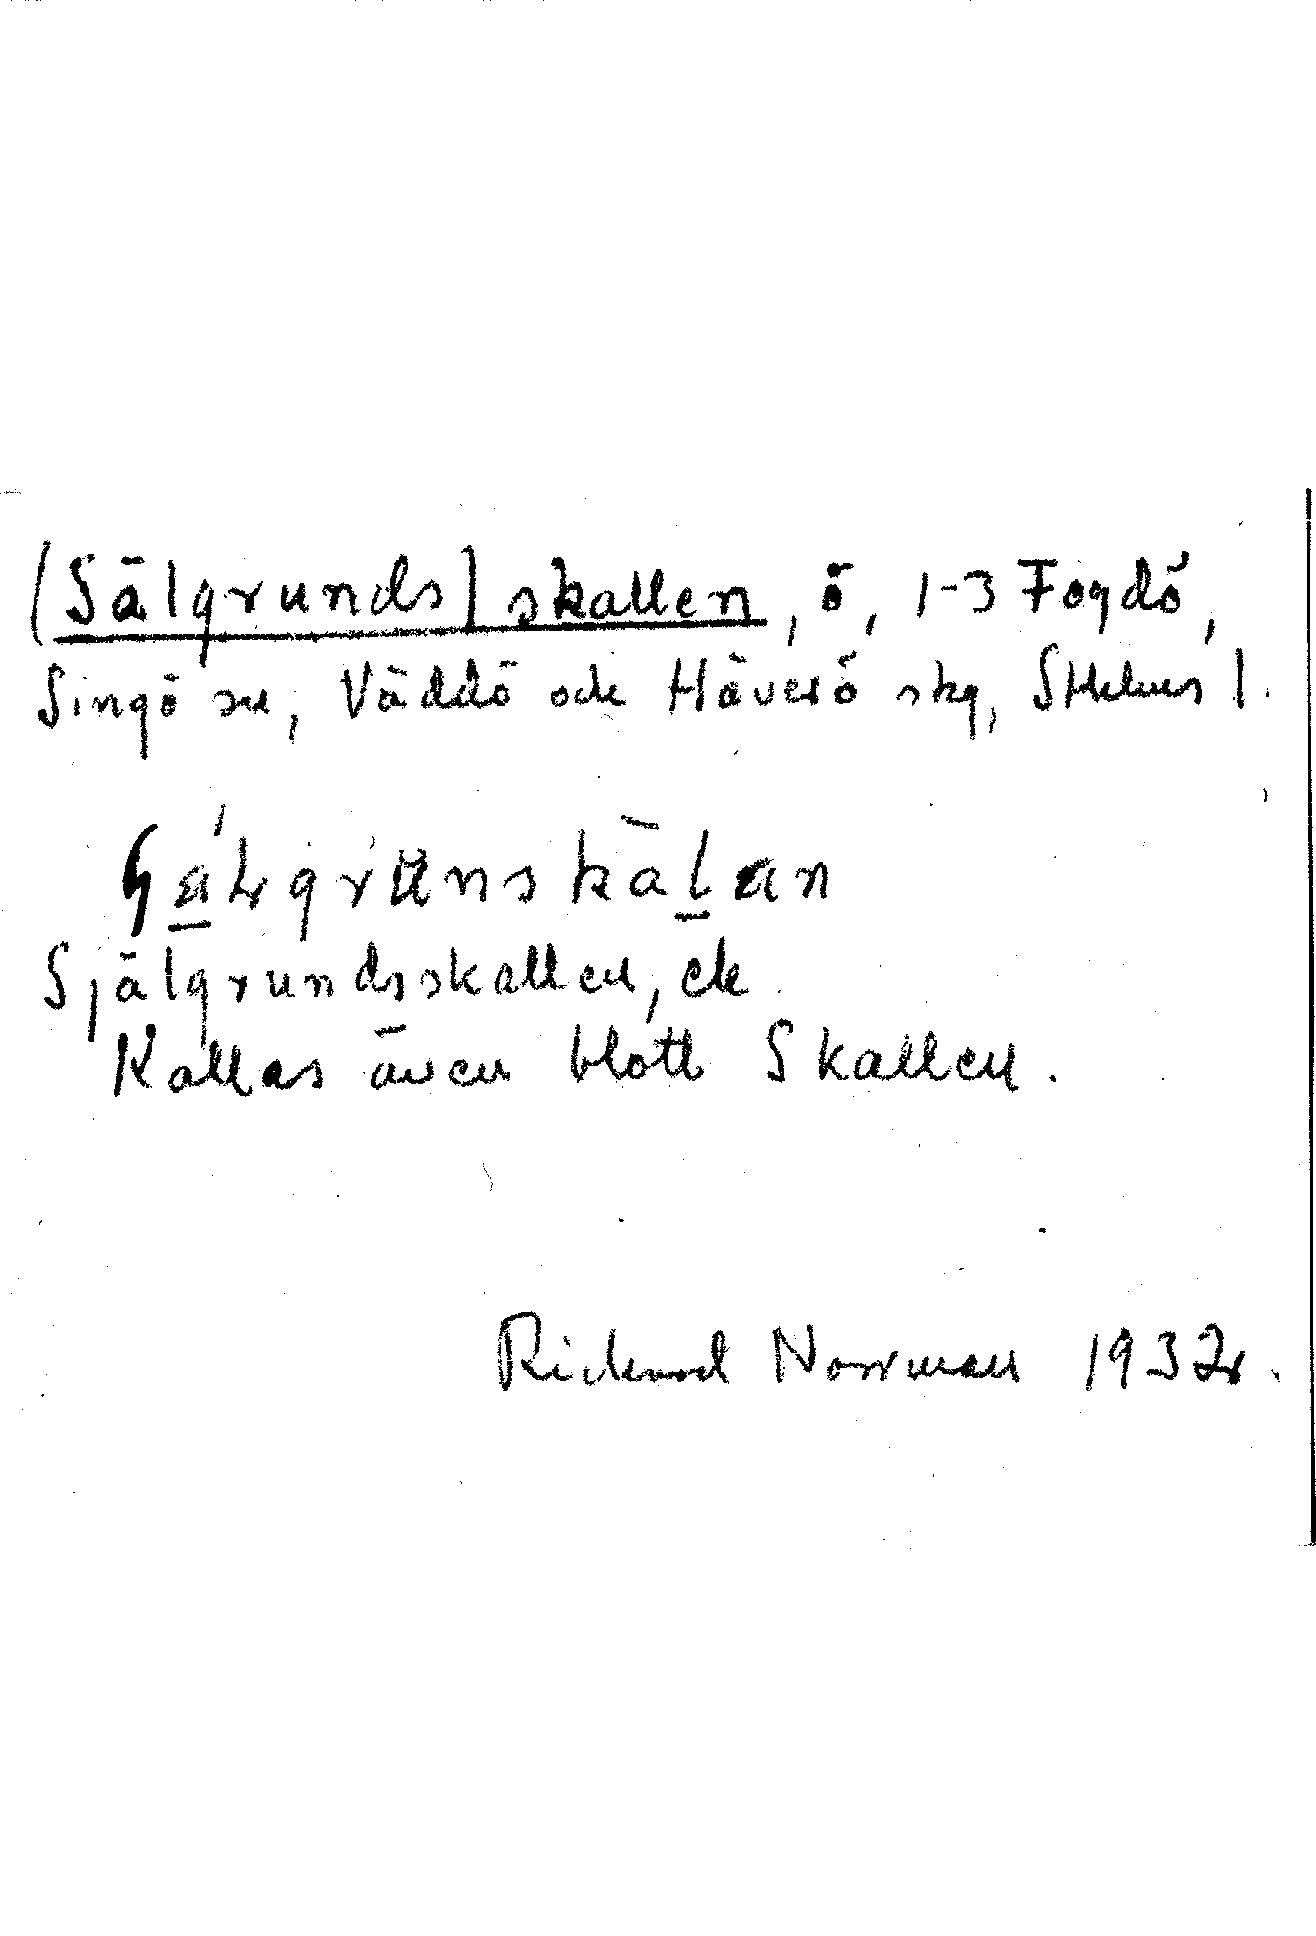 (Sälgrunds)skallen, ö, 1-3 Fogdö,
Singö sn, Väddö och Häverö skg, Sthlms l.
Själgrundsskallen, ek
Kallas även blott Skallen.
Rickard Norrman 1932.